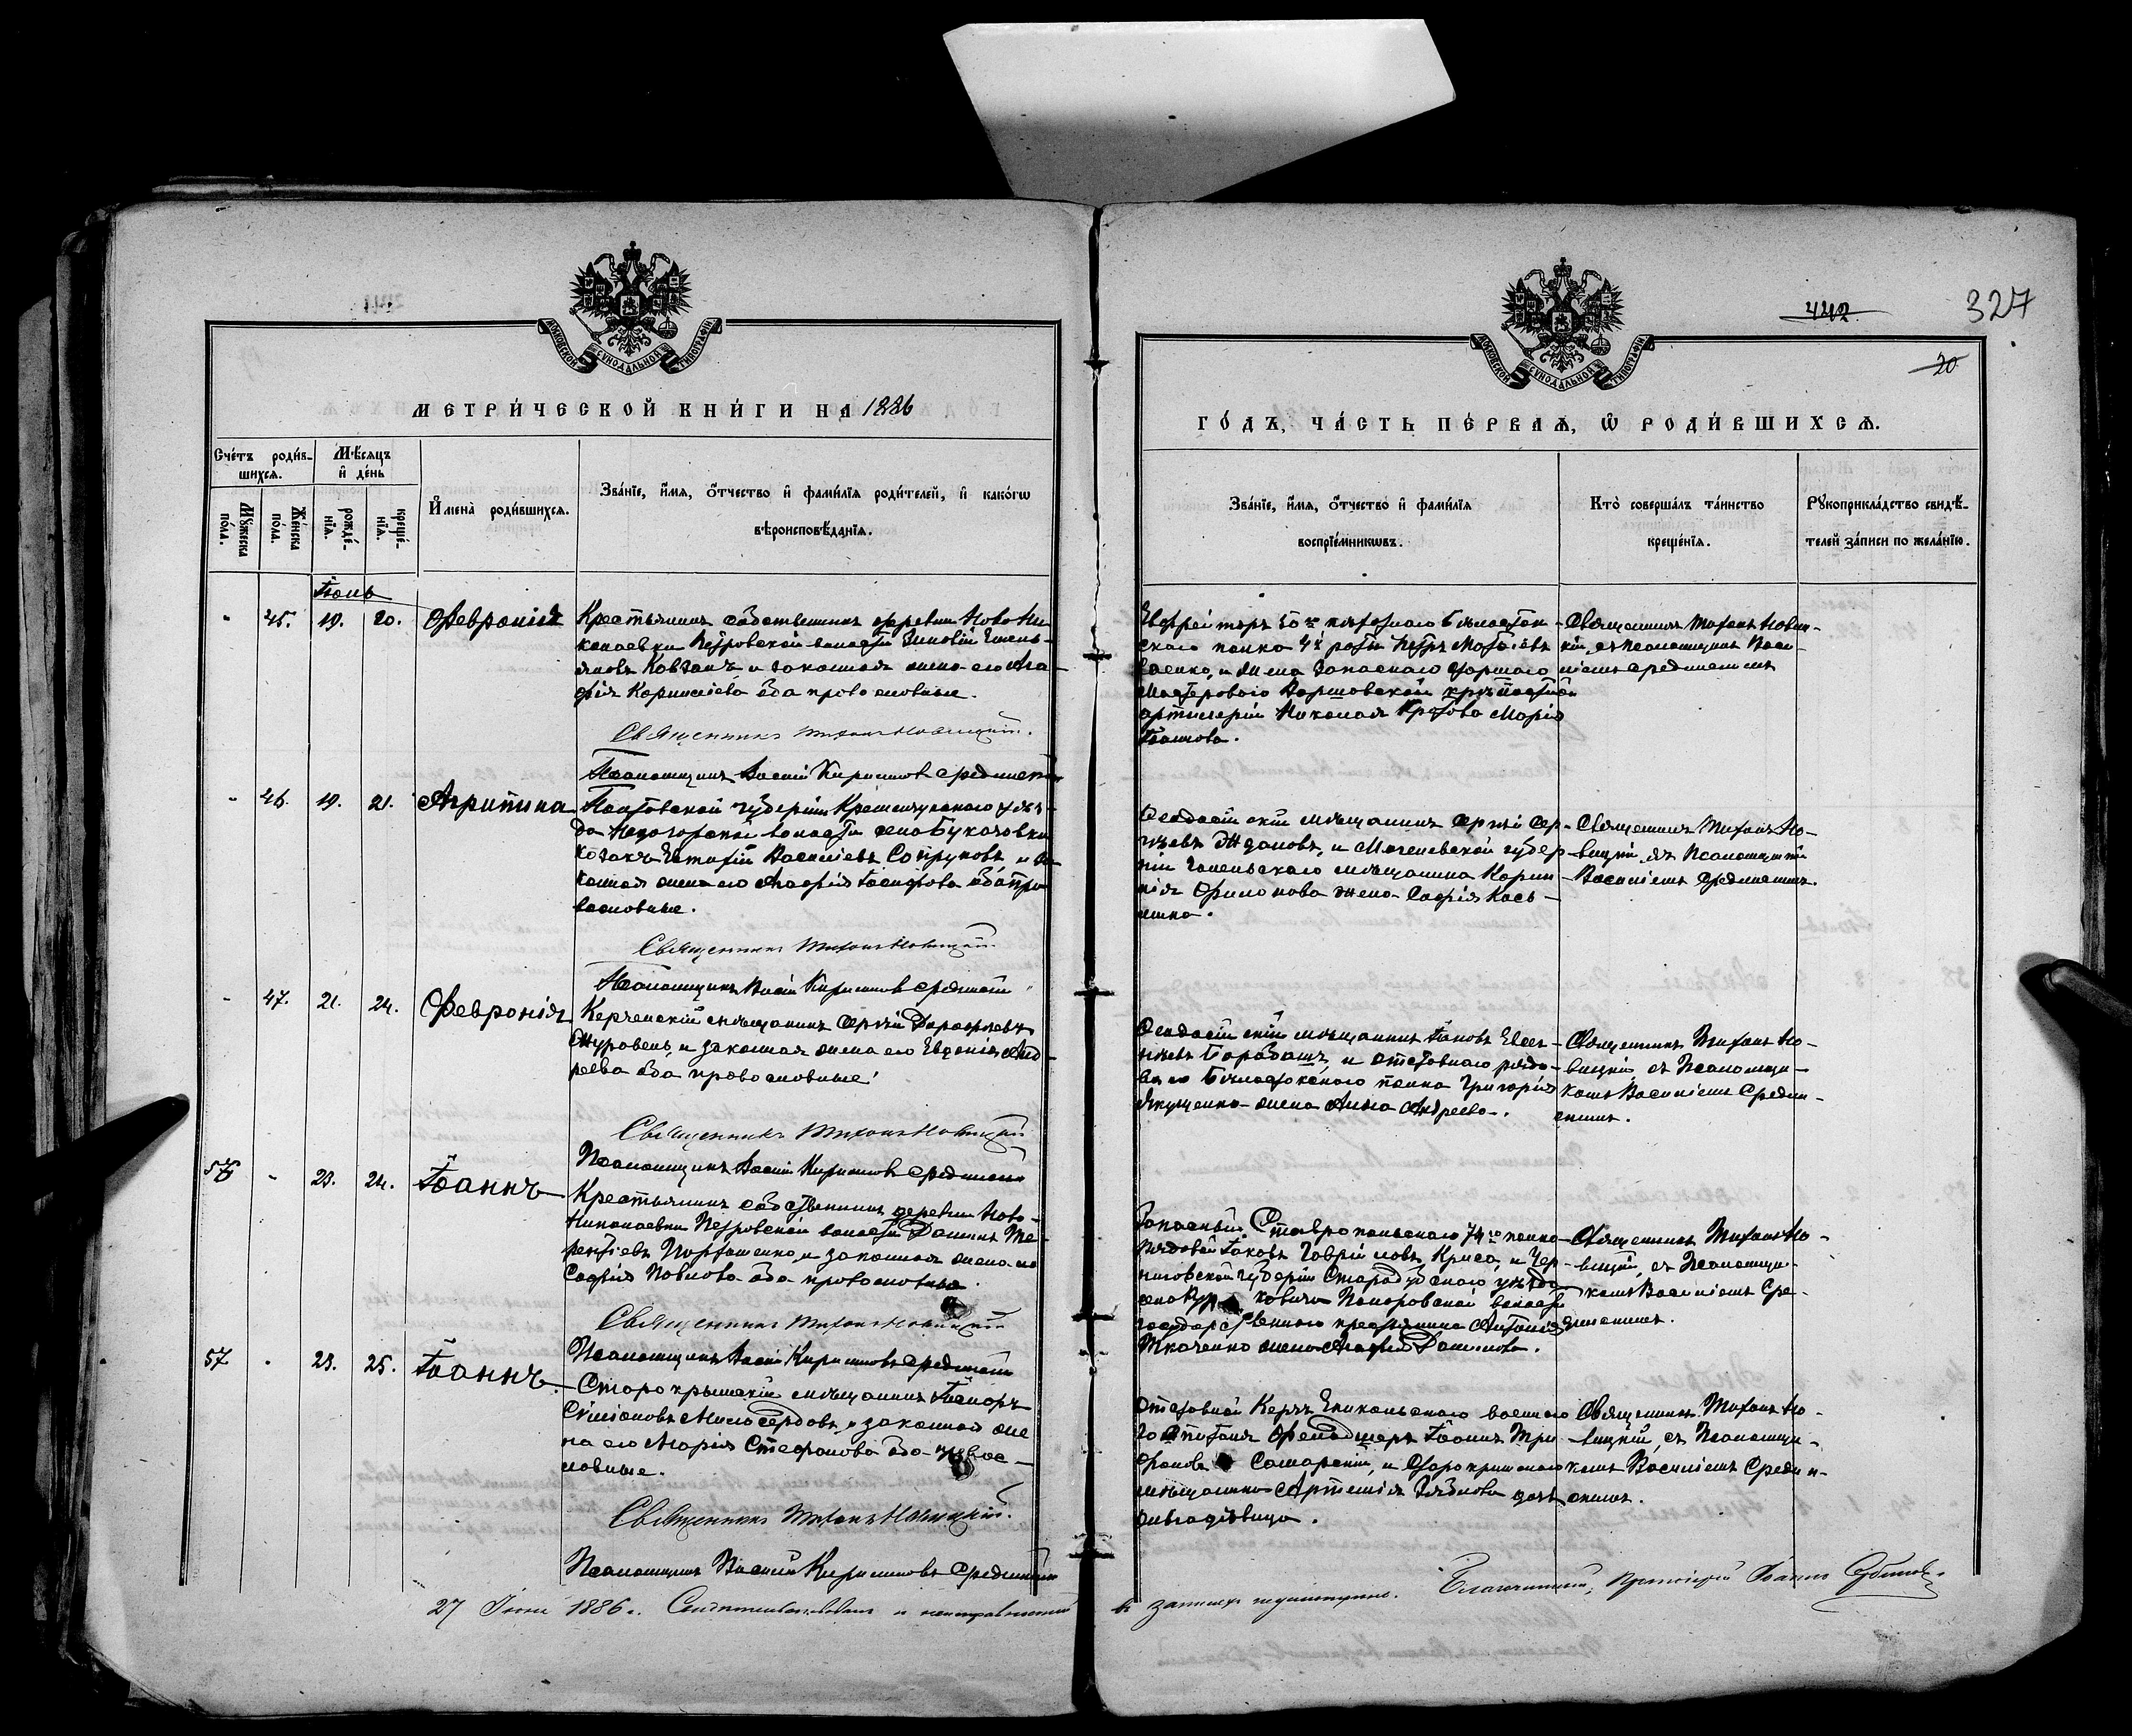 МОСКОВСКОЙ СѴНОДАЛЬНОЙ ТИПОГРАФІИ
МЕТРИ́ЧЕСКОЙ КНИ́ГИ НА 1886
Сче́тъ роди́в-
шихся.
Мѣ́сяцъ
и҆ де́нь
Мꙋ́жеска
по́ла.
Же́нска
по́ла.
рожде́-
нїѧ.
креще́-
нїѧ.
И҆мена̀ роди́вшихсѧ.
Зва́нїе, и҆́мѧ, ѻ҆́тчество и҆ фами́лїѧ роди́телей, и҆ како́гѡ
вѣроисповѣ́данїѧ.
Іюнь
45. 19. 20. Февронія
Крестьянинъ собственникъ деревни Ново Ни-
колаевки Петровской волости Зиновій Емель-
яновъ Ковганъ и законная жена его Ага-
фія Корнилиева оба православные.
Священникъ Тихонъ Новицкій.
Псаломщикъ Василій Кириловъ Срединскій
46. 19. 21. Агрипина
Полтавской губерніи Кременчугскаго уѣз-
да волости села Букаловки
козакъ Евтихій Василіевъ и за-
конная жена его Агафія Іосифова оба пра-
вославные.
Священникъ Тихонъ Новицкій.
Псаломщикъ Васілій Кириловъ Срединскій
47. 21. 24. Февронія
Керченскій мѣщанинъ Сергій Дорофѣевъ
Журавель и законная жена его Евфимія Анд-
реева оба православные.
Священникъ Тихонъ Новицкій
Псаломщикъ Васілій Кириловъ Срединскій
56 - 23. 24. Іоаннъ
Крестьянинъ собственникъ деревни Ново-
Николаевки Петровской волости Даніилъ Те-
рентіевъ и законная жена его
Софія Павлова оба православные.
Священникъ Тихонъ Новицкій
Псаломщикъ Васілій Кириловъ Срединскій
57 - 23. 25. Іоаннъ.
Старокрымскій мѣщанинъ
Симіоновъ Милосердовъ и законная же-
на его Марія Стефанова оба правос-
лавные.
Священникъ Тихонъ Новицкій.
Псаломщикъ Василій Кириловъ Срединскій
27 Іюня 1886 г. Свидѣтельствовалъ и неисправностей
442.
327
20
МОСКОВСКОЙ СѴНОДАЛЬНОЙ ТИПОГРАФІИ
ГО́ДЪ, ЧА́СТЬ ПЕ́РВАѦ, Ѡ҆ РОДИ́ВШИХСѦ.
Зва́нїе, и҆́мѧ, ѻ҆́тчество и҆ фами́лїѧ
воспрїе́мникѡвъ.
Кто̀ соверша́лъ та́инство
креще́нїѧ.
Рꙋкоприкла́дство свидѣ́-
телей за́писи по жела́нїю.
Ефрейторъ 50го пѣхотнаго Бѣлосток-
скаго полка 4й роты Петръ Матвіевъ
и жена запаснаго старшаго
мастероваго Варшавской крѣпостной
артилеріи Николая Марія
Іоаннова.
Священникъ Тихонъ Новиц-
кій, съ псаломщикомъ Васи-
ліемъ Срединскимъ
Феодосійскій мѣщанинъ Сергій Сер-
гѣевъ Ждановъ, и Могилевской губер-
ніи Гомельскаго мѣщанина Корни-
лія Филонова жена София Кось-
мина.
Священникъ Тихонъ Но-
вицкій съ Псаломщикомъ
Василіемъ Срединскимъ.
Феодосійскій мѣщанинъ Іаковъ Евсе-
ніевъ Барабашъ, и отставнаго рядо-
ваго Бѣлостокскаго полка Григорія
Якущенко жена Анна Андреева.
Священникъ Тихонъ Но-
вицкій съ Псаломщи-
комъ Василіемъ Средин-
скимъ.
Запасный Ставропольскаго 74го полка
рядовой Іаковъ Гавріиловъ Криса, и Чер-
ниговской губерніи Стародубскаго уѣзда
села волости
государственнаго крестьянина Антонія
Ткаченко жена Агафія Данилова.
Священникъ Тихонъ Но-
вицкій, съ Псаломщи-
комъ Василіемъ Сре-
динскимъ.
Отставной Керчь Еникольскаго военна-
го госпиталя Фельдшеръ Іоаннъ Три-
фоновъ Самарскій, и Старокрымскаго
мѣщанина Артемія дочь
дѣвица.
Священникъ Тихонъ Но-
вицкій, съ Псаломщи-
комъ Василіемъ Средин-
скимъ.
въ записяхъ не усмотрѣно. Благочинный, Протоіерей Іоаннъ